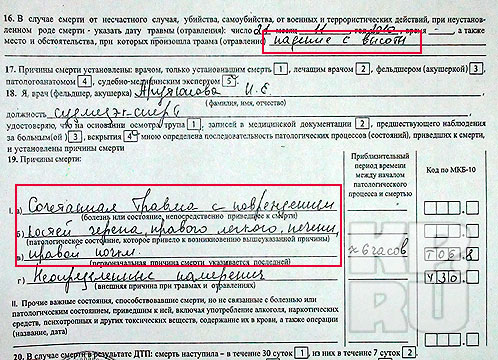 16. В случае смерти от несчастного случая, убийства, самоубийства, от военных и террористических действий, при неустанов-
ленном роде смерти - указать дату травмы (отравления): число 21 месяц 11 год 2010, время - , а также
место и обстоятельства, при которых произошла травма (отравление) падение с высоты
17. Причины смерти установлены: врачом, только установившим смерть 1 , лечащим врачом 2 , фельдшером (акушеркой) 3 ,
патологоанатомом 4 , судебно-медицинским экспертом 5
18. Я, врач (фельдшер, акушерка) И. Е
(фамилия, имя, отчество)
должность судмедэксперт
удостоверяю, что на основании осмотра трупа 1 , записей в медицинской документации 2 , предшествующего наблюдения
за больным(ой) 3 , вскрытия 4 мною определена последовательность патологических процессов (состояний), приведших к смерти,
и установлены причины смерти
19. Причины смерти:
Приблизительный
период времени
между началом
патологического
процесса и смертью
Код по МКБ-10
I. а) Сочетанная травма с повреждением
(болезнь или состояние, непосредственно приведшее к смерти)
б) костей черепа, правого легкого, печени,
(патологическое состояние, которое привело к возникновению вышеуказанной причины)
в) правой почки
≈ 6 часов
T06.8
(первоначальная причина смерти указывается последней)
г) Неопределенные намерения
Y30.
(внешняя причина при травмах и отравлениях)
II. Прочие важные состояния, способствовавшие смерти, но не связанные с болезнью или
патологическим состоянием, приведшим к ней, включая употребление алкоголя, наркотических
средств, психотропных и других токсических веществ, содержание их в крови, а также операции
(название, дата)
20. В случае смерти в результате ДТП: смерть наступила - в течение 30 суток 1 , из них в течение 7 суток 2
KP.RU